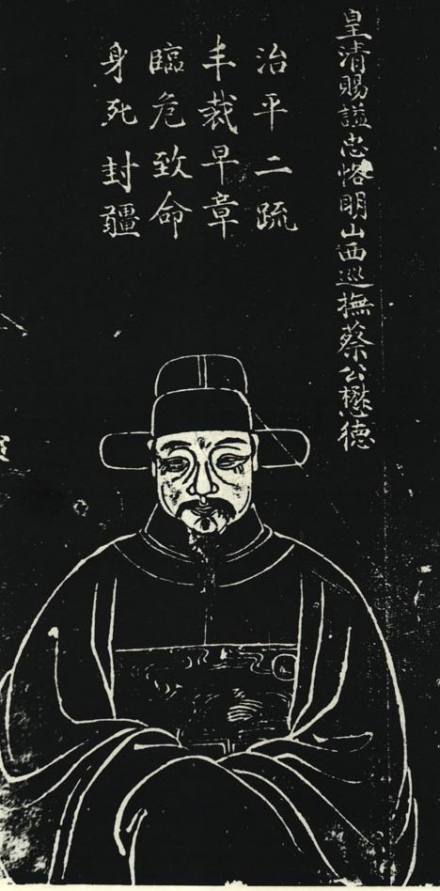 皇清賜諡忠恪明山西巡撫蔡公懋德
治平二疏
丰裁早章
臨危致命
身死封疆